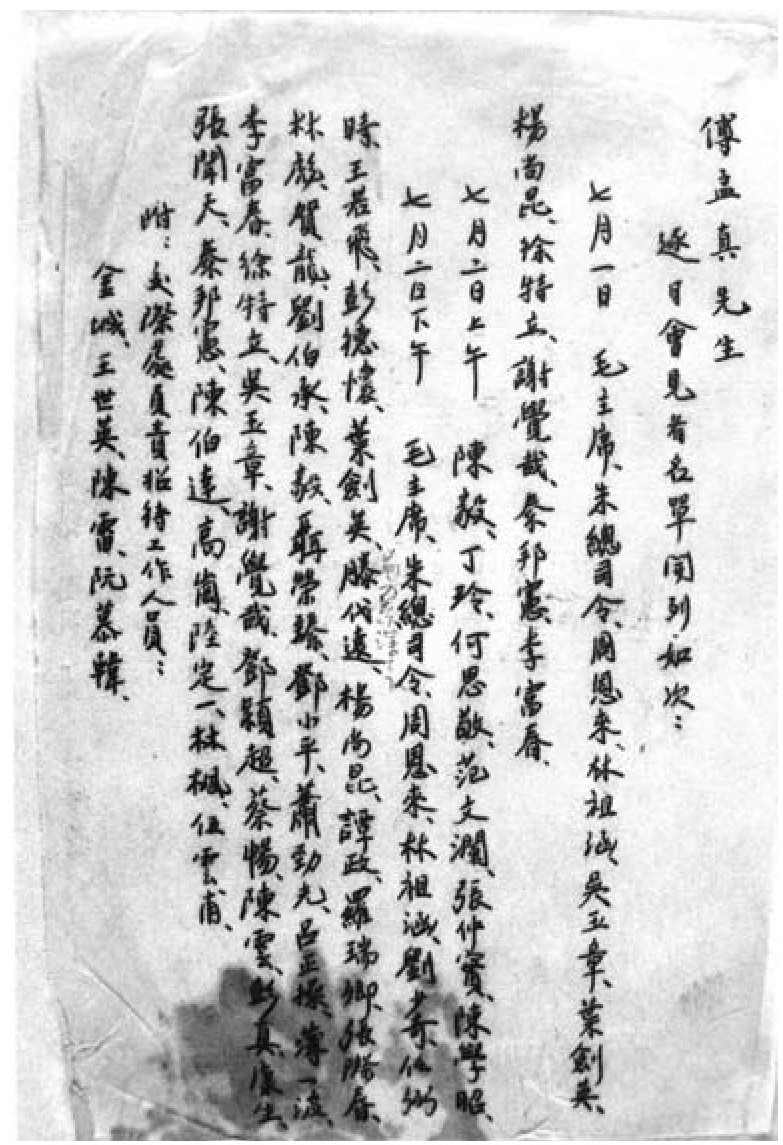 傅孟真先生
逐日會見者名單開列如次：
七月一日　毛主席、朱總司令、周恩来、林祖涵、吳玉章、葉劍英、
楊尚昆、徐特立、謝覺哉、秦邦憲、李富春、
七月二日上午　陳毅、丁玲、何思敬、范文瀾、張仲實、陳學昭、
七月二日下午　毛主席、朱總司令、周恩来、林祖涵、劉少奇、任弼
時、王若飛、彭德懷、葉劍英、滕代遠、楊尚昆、譚政、羅瑞卿、張際春、
林彪、賀龍、劉伯承、陳毅、聶榮臻、鄧小平、蕭勁光、呂正操、薄一波、
李富春、徐特立、吳玉章、謝覺哉、鄧穎超、蔡暢、陳雲、彭真、康生、
張聞天、秦邦憲、陳伯達、高崗、陸定一、林楓、伍雲甫、
附：交際處負責招待工作人員：
金城、王世英、陳雷、阮慕韓、